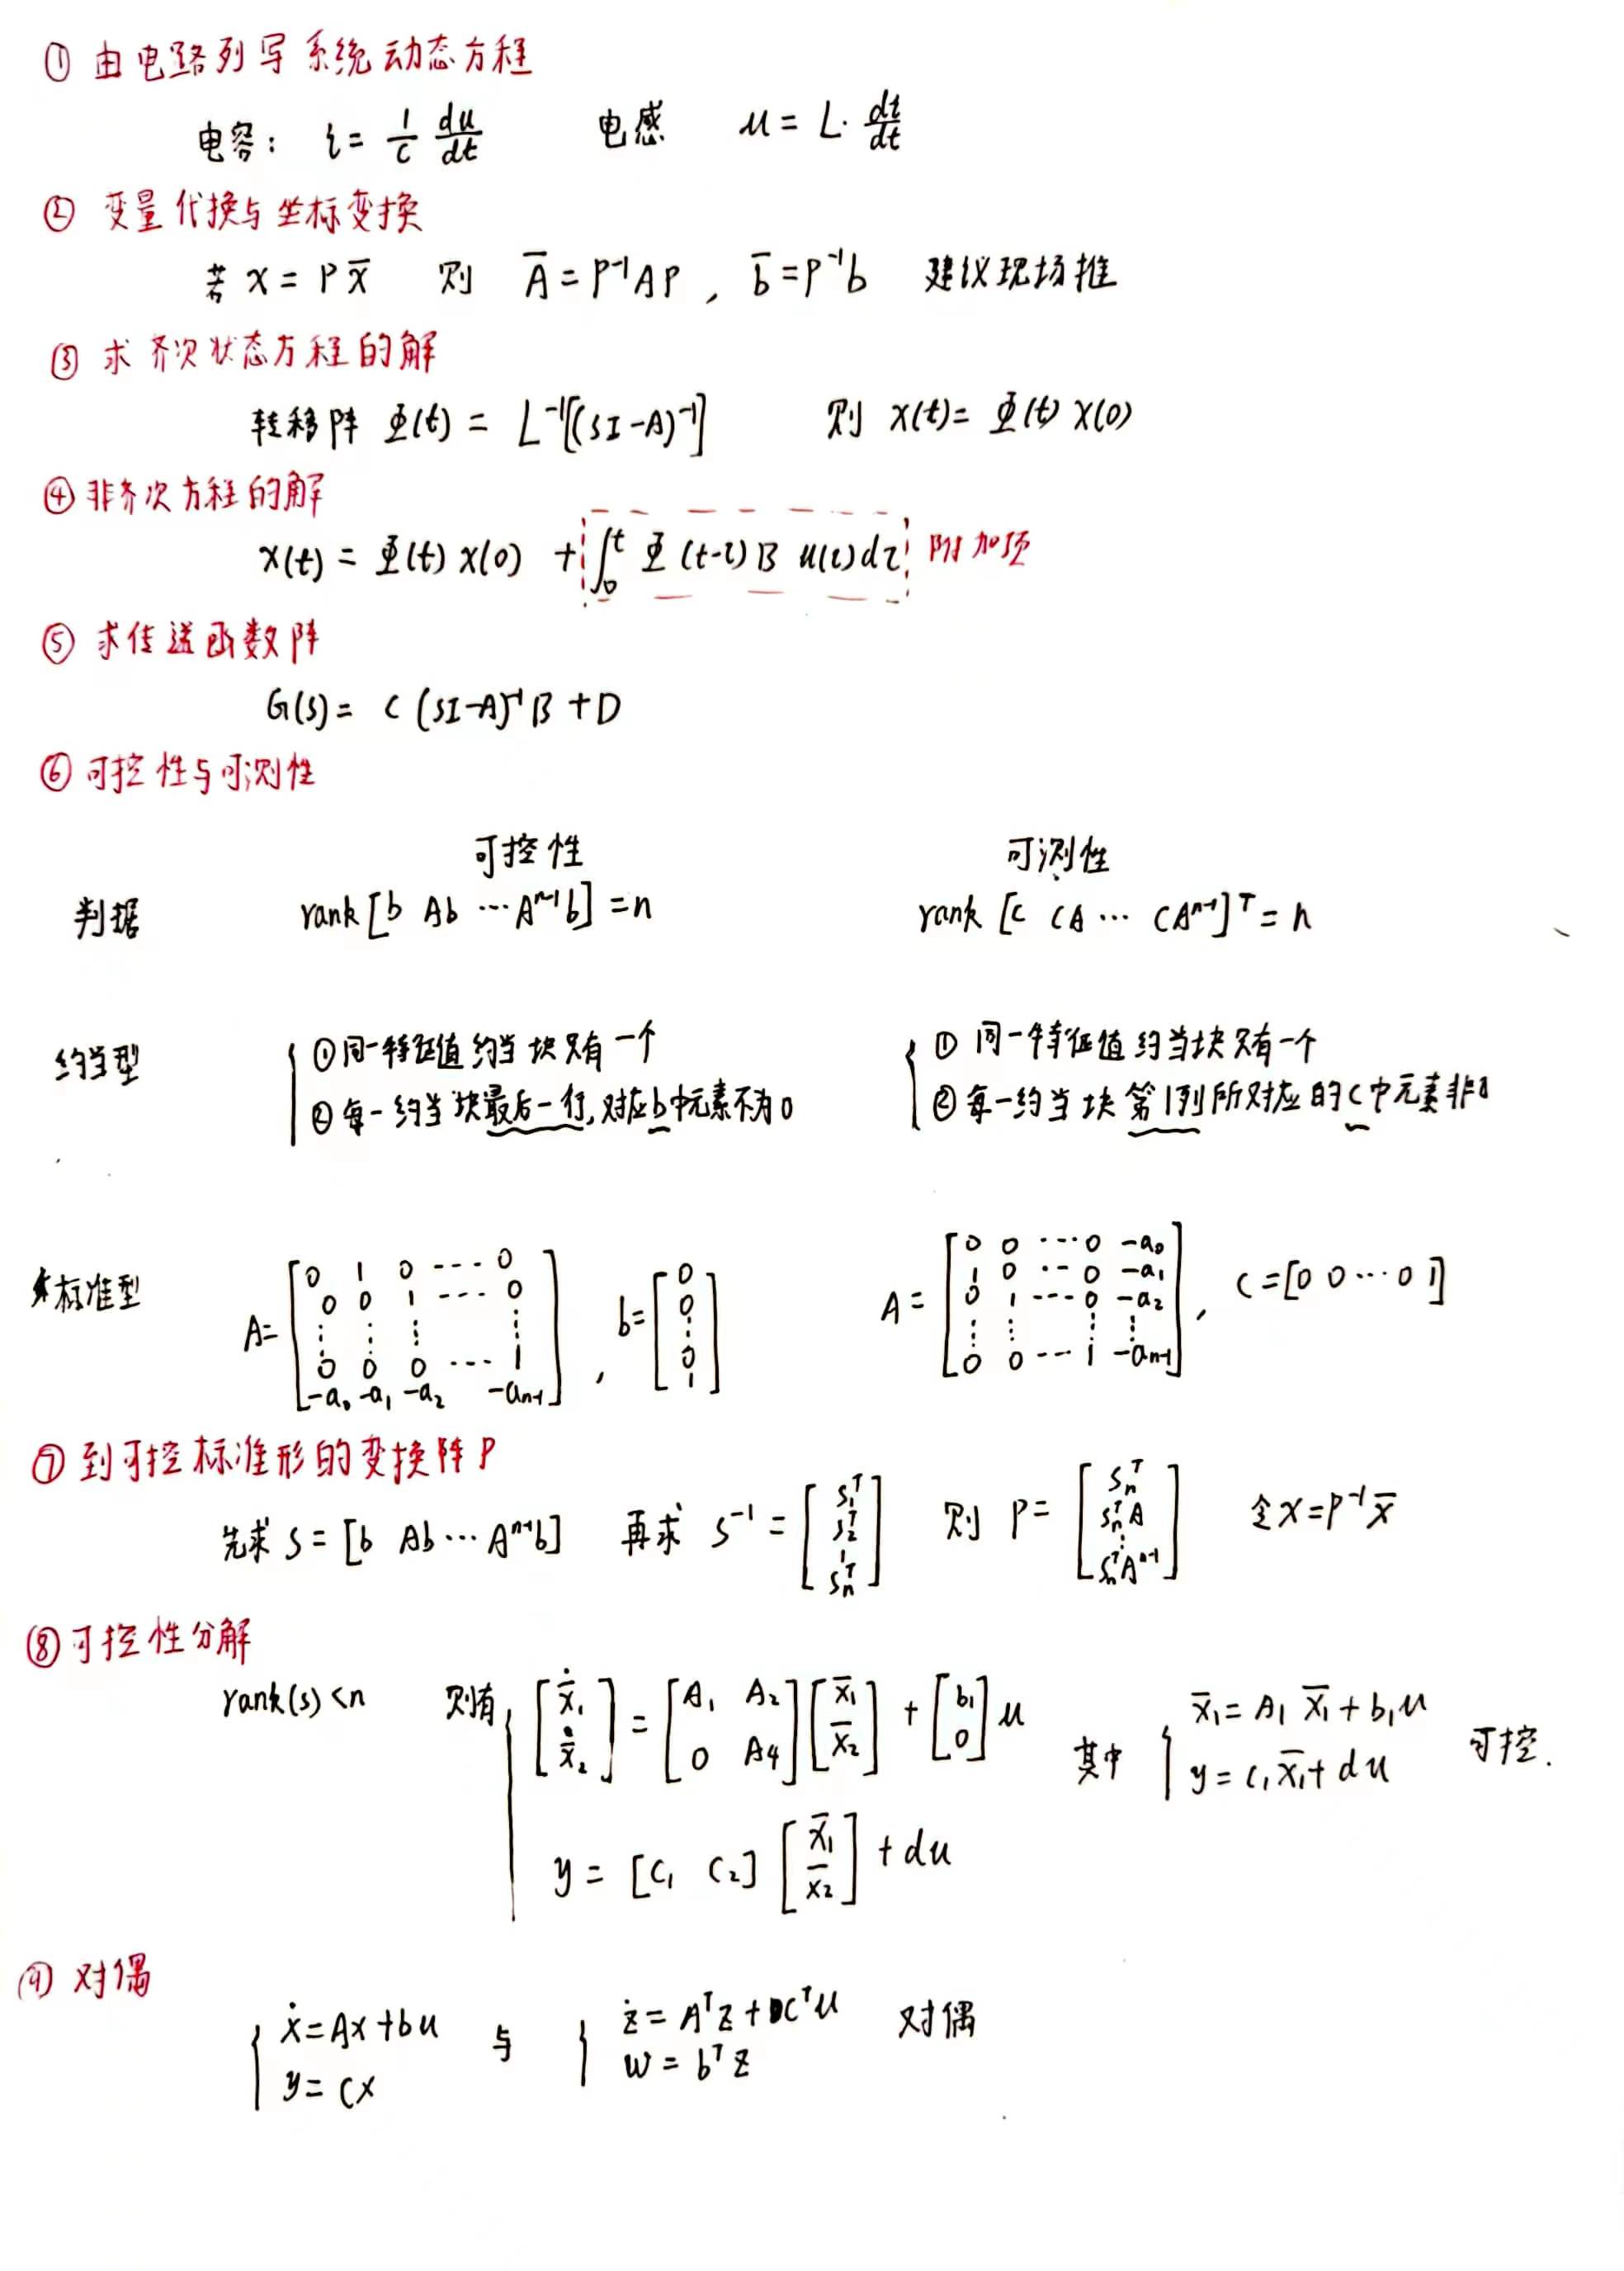 ① 由电路列写系统动态方程
电容： i = 1/C du/dt　　电感　u = L· di/dt
② 变量代换与坐标变换
若 x = P x̄　则　Ā = P⁻¹AP , b̄ = P⁻¹b　建议现场推
③ 求齐次状态方程的解
转移阵 Φ(t) = L⁻¹[(sI-A)⁻¹]　则 x(t) = Φ(t) x(0)
④ 非齐次方程的解
x(t) = Φ(t) x(0) + ∫₀ᵗ Φ(t-τ) B u(τ) dτ 附加项
⑤ 求传递函数阵
G(s) = C (sI-A)⁻¹B + D
⑥ 可控性与可测性
可控性　可测性
判据　rank [b Ab ⋯ Aⁿ⁻¹b] = n　rank [C CA ⋯ CAⁿ⁻¹]ᵀ = n
约当型　① 同一特征值约当块只有一个　① 同一特征值约当块只有一个
② 每一约当块最后一行,对应b中元素不为0　② 每一约当块第1列所对应的C中元素非0
标准型　A = [0 1 0 ---- 0; 0 0 1 ---- 0; ⋮ ⋮ ⋮ ⋮; 0 0 0 ⋯ 1; -a₀ -a₁ -a₂ -aₙ₋₁] , b = [0; 0; ⋮; 0; 1]　A = [0 0 ⋯ 0 -a₀; 1 0 ⋯ 0 -a₁; 0 1 ---- 0 -a₂; ⋮ ⋮ ⋮ ⋮; 0 0 --- 1 -aₙ₋₁] , C = [0 0 ⋯ 0 1]
⑦ 到可控标准形的变换阵P
先求 S = [b Ab ⋯ Aⁿ⁻¹b]　再求 S⁻¹ = [S₁ᵀ; S₂ᵀ; ⋮; Sₙᵀ]　则 P = [Sₙᵀ; SₙᵀA; ⋮; SₙᵀAⁿ⁻¹]　令 x = P⁻¹x̄
⑧ 可控性分解
rank(S) < n　则有 [x̄̇₁; x̄̇₂] = [A₁ A₂; 0 A₄][x̄₁; x̄₂] + [b₁; 0] u　其中 { x̄₁ = A₁ x̄₁ + b₁u　y = C₁x̄₁ + du　可控.
y = [C₁ C₂] [x̄₁; x̄₂] + du
⑨ 对偶
ẋ = Ax + bu　与　ż = AᵀZ + Cᵀu　对偶
y = Cx　w = bᵀZ